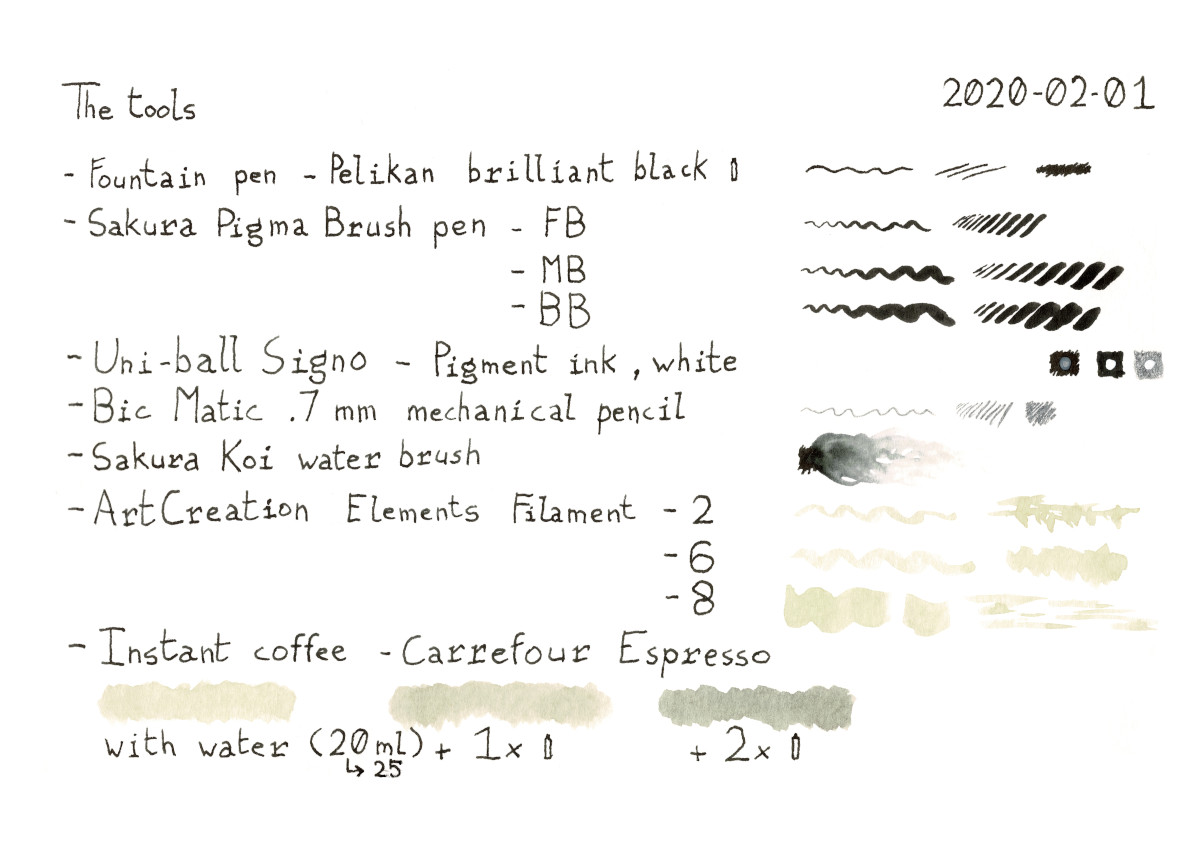 The tools 2020-02-01
- Fountain pen - Pelikan brilliant black
- Sakura Pigma Brush pen - FB
- MB
- BB
- Uni-ball Signo - Pigment ink, white
- Bic Matic .7 mm mechanical pencil
- Sakura Koi water brush
- ArtCreation Elements Filament - 2
- 6
- 8
- Instant coffee - Carrefour Espresso
with water (20 ml) + 1x + 2x
↳ 25